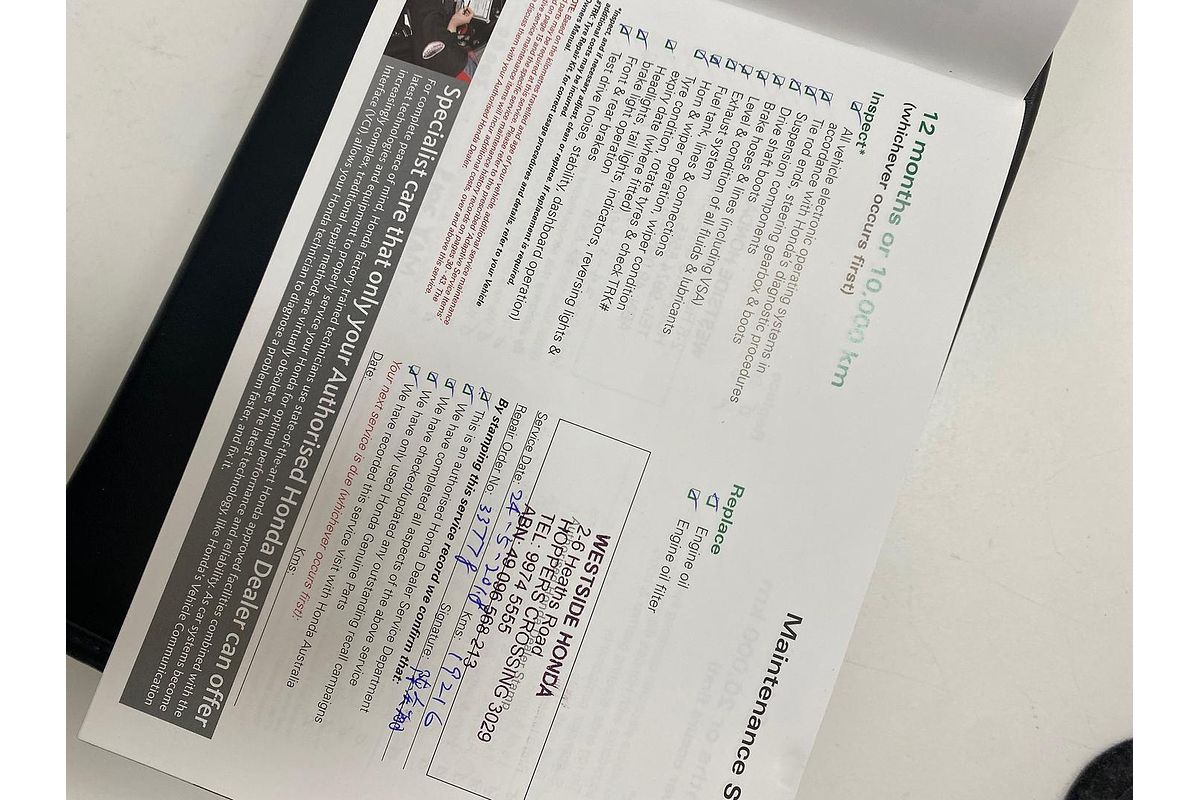 Maintenance S
12 months or 10,000 km
(whichever occurs first)
Inspect*
All vehicle electronic operating systems in
accordance with Honda's diagnostic procedures
Tie rod ends, steering gearbox & boots
Suspension components
Drive shaft boots
Brake hoses & lines (including VSA)
Level & condition of all fluids & lubricants
Exhaust system
Fuel tank, lines & connections
Horn & wiper operation, wiper condition
Tyre condition, rotate tyres & check TRK#
expiry date (where fitted)
Headlights, tail lights, indicators, reversing lights &
brake light operation
Front & rear brakes
Test drive (noise, stability, dashboard operation)
*Inspect, and if necessary adjust, clean or replace. If replacement is required,
additional costs may be incurred.
#TRK: Tyre Repair Kit, for correct usage procedures and details, refer to your Vehicle
Owners Manual.
Replace
Engine oil
Engine oil filter
WESTSIDE HONDA
26 Heaths Road
HOPPERS CROSSING 3029
TEL: 9974 5555
ABN 49 006 568 213
Service Date: 24-5-2018
Kms: 19216
Repair Order No: 33778
Signature:
By stamping this service record we confirm that:
This is an authorised Honda Dealer Service Department
We have completed all aspects of the above service
We have checked/updated any outstanding recall campaigns
We have only used Honda Genuine Parts
We have recorded this service visit with Honda Australia
Your next service is due (whichever occurs first):
Date:
Kms:
Specialist care that only your Authorised Honda Dealer can offer
For complete peace of mind, Honda factory trained technicians use state-of-the-art Honda approved facilities combined with the
latest technologies and equipment to properly service your Honda for optimal performance and reliability. As car systems become
increasingly complex, traditional repair methods are virtually obsolete. The latest technology, like Honda's Vehicle Communication
Interface (VCI), allows your Honda technician to diagnose a problem faster, and fix it.